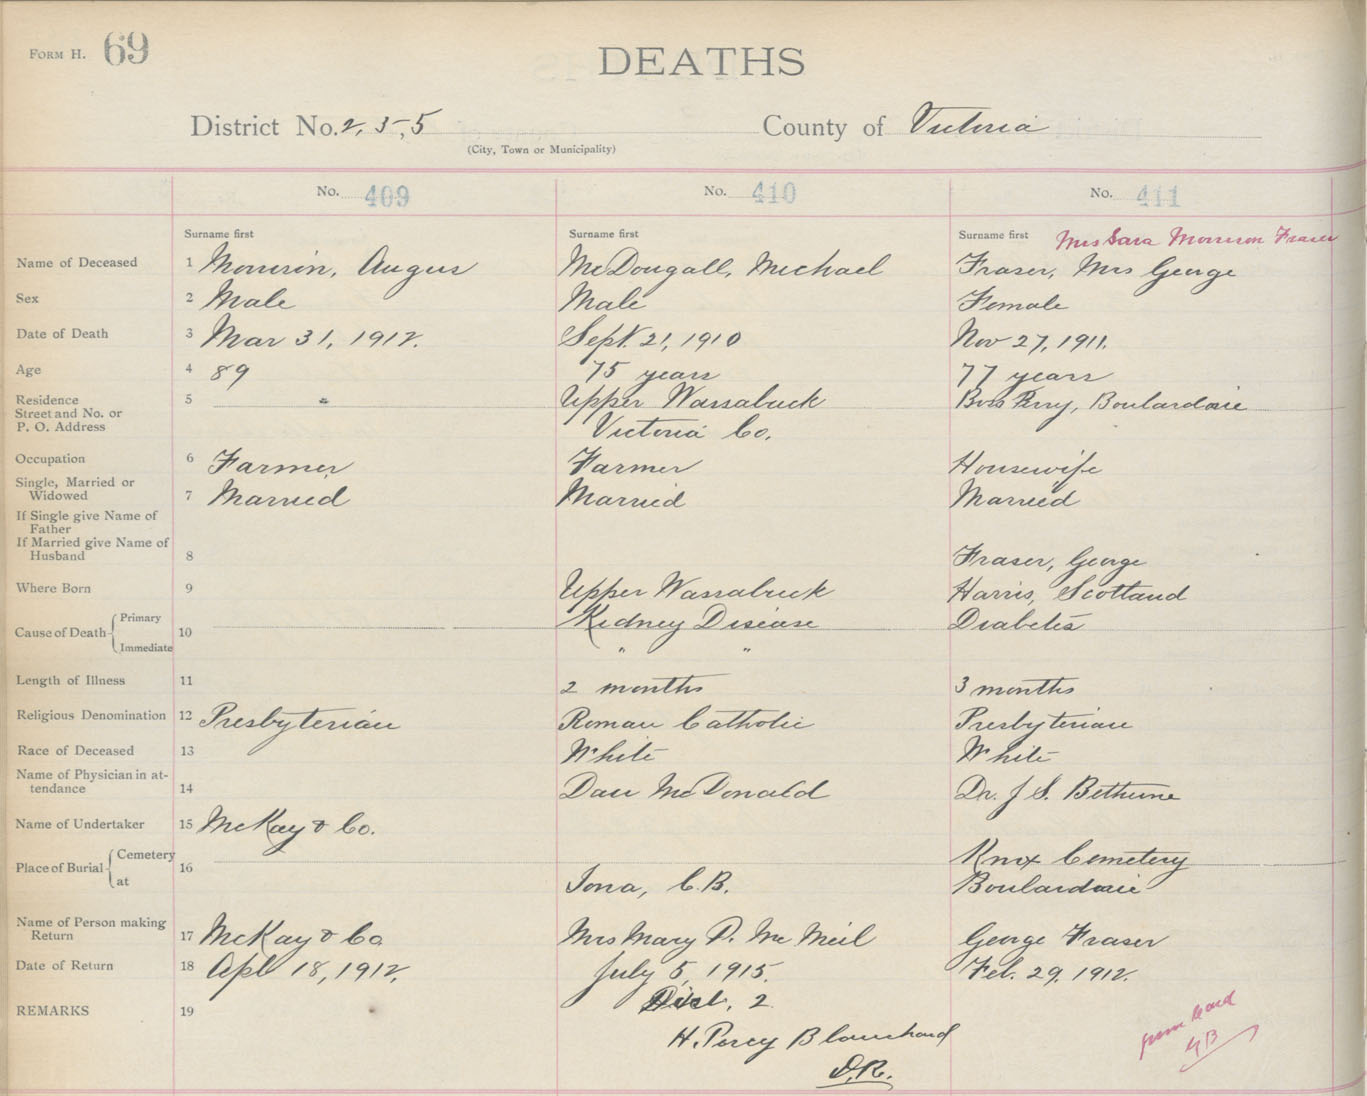 FORM H. 69
DEATHS
District No. 2,5,5 County of Victoria
(City, Town or Municipality)
No. 409 No. 410 No. 411
Surname first Surname first Surname first Mrs Sara Morrison Fraser
Name of Deceased 1 Morrison, Angus McDougall, Michael Fraser, Mrs George
Sex 2 Male Male Female
Date of Death 3 Mar 31, 1912. Sept. 21, 1910 Nov 27, 1911.
Age 4 89 75 years 77 years
Residence 5 Upper Wassabuck Boulardarie
Street and No. or
P. O. Address Victoria Co.
Occupation 6 Farmer Farmer Housewife
Single, Married or
Widowed 7 Married Married Married
If Single give Name of
Father
If Married give Name of
Husband 8 Fraser, George
Where Born 9 Upper Wassabuck Harris, Scotland
Cause of Death Primary 10 Kidney Disease Diabetes
Immediate " "
Length of Illness 11 2 months 3 months
Religious Denomination 12 Presbyterian Roman Catholic Presbyterian
Race of Deceased 13 White White
Name of Physician in at-
tendance 14 Dan McDonald Dr. J S. Bethune
Name of Undertaker 15 McKay & Co.
Place of Burial Cemetery 16 Knox Cemetery
at Iona, C.B. Boulardarie
Name of Person making
Return 17 McKay & Co Mrs Mary P. McNeil George Fraser
Date of Return 18 Apl 18, 1912. July 5, 1915. Feb. 29, 1912.
REMARKS 19 Dist. 2
H. Percy Blanchard
D.R.
from card
GB